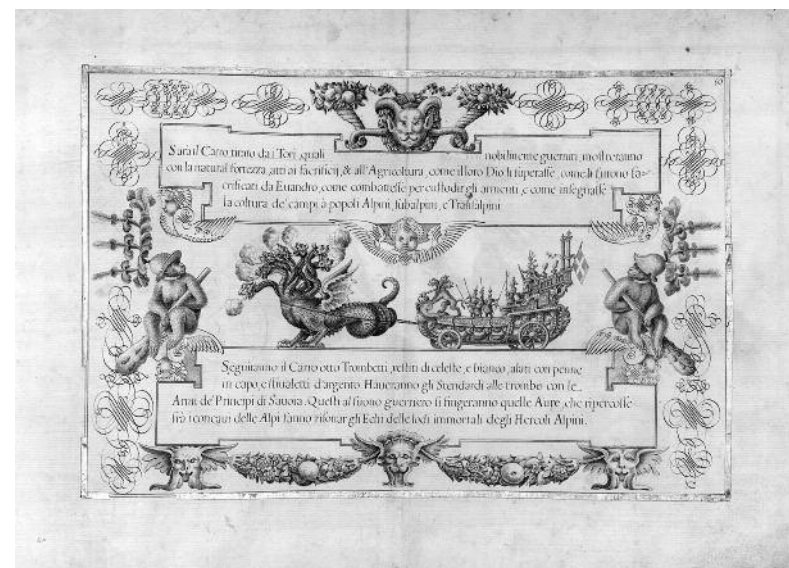 50
Sarà il Carro tirato da i Tori, quali nobilmente guerniti, mostreranno
con la natural fortezza, atti ai sacrificij, & all'Agricoltura, come il loro Dio li superasse, come li furono sa-
crificati da Euandro, come combattesse per custodir gli armenti, e come insegnasse
la coltura de' campi à popoli Alpini, subalpini, e Trasalpini.
Seguiranno il Carro otto Trombetti, vestiti di celeste, e bianco, alati con penne
in capo, e stiualetti d'argento. Haueranno gli Stendardi alle trombe con le
Armi de' Principi di Sauoia. Questi al suono guerriero si fingeranno quelle Aure, che ripercosse
frà i concaui delle Alpi fanno risonar gli Echi delle lodi immortali degli Hercoli Alpini.